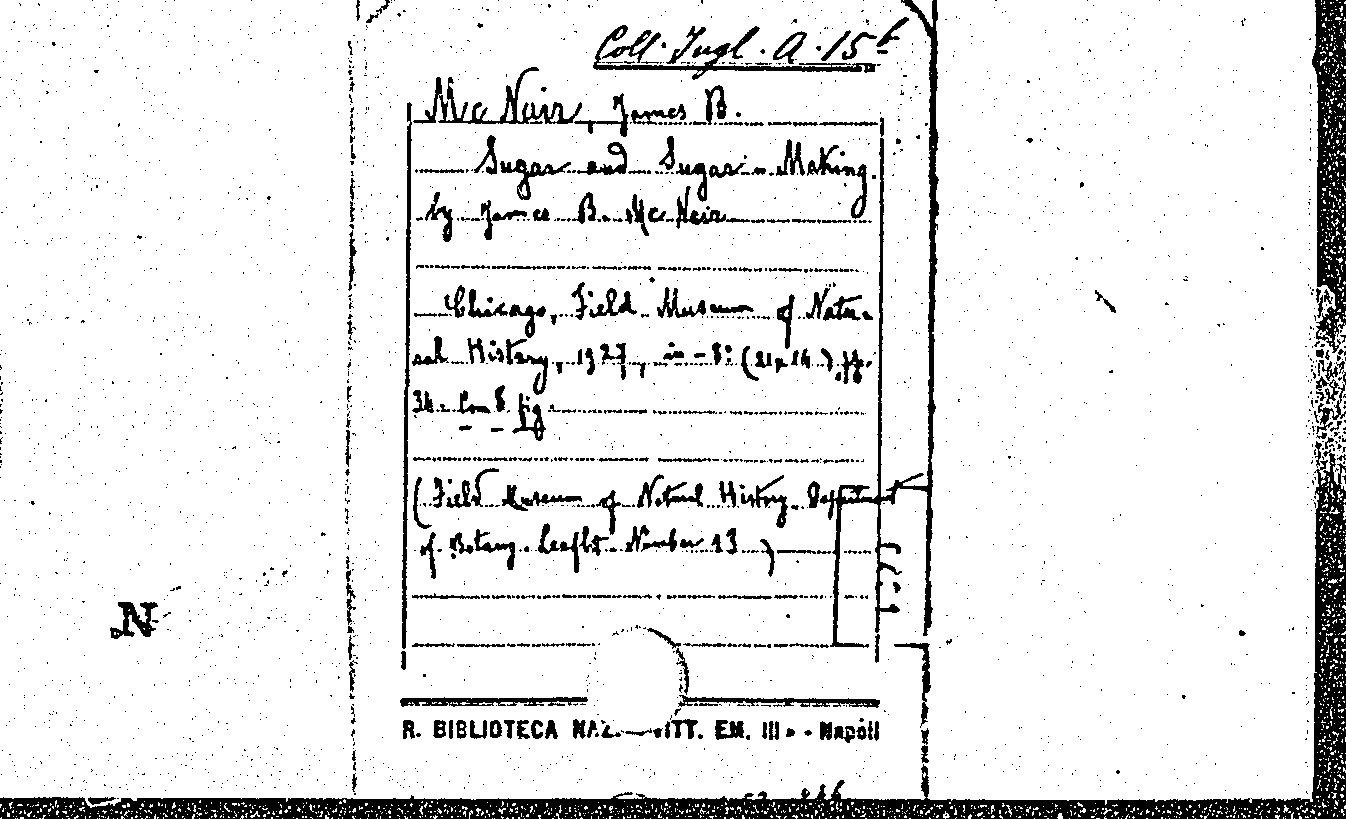 Coll. Ingl. A. 15
Mc Nair, James B.
Sugar and Sugar - Making
by James B. Mc Nair
Chicago, Field Museum of Natu-
ral History, 1927, in - 8° (21x14) pp.
34. Con 8 fig.
(Field Museum of Natural History. Department
of Botany. Leaflet. Number 13)
N
R. BIBLIOTECA NAZ. VITT. EM. III » - Napoli